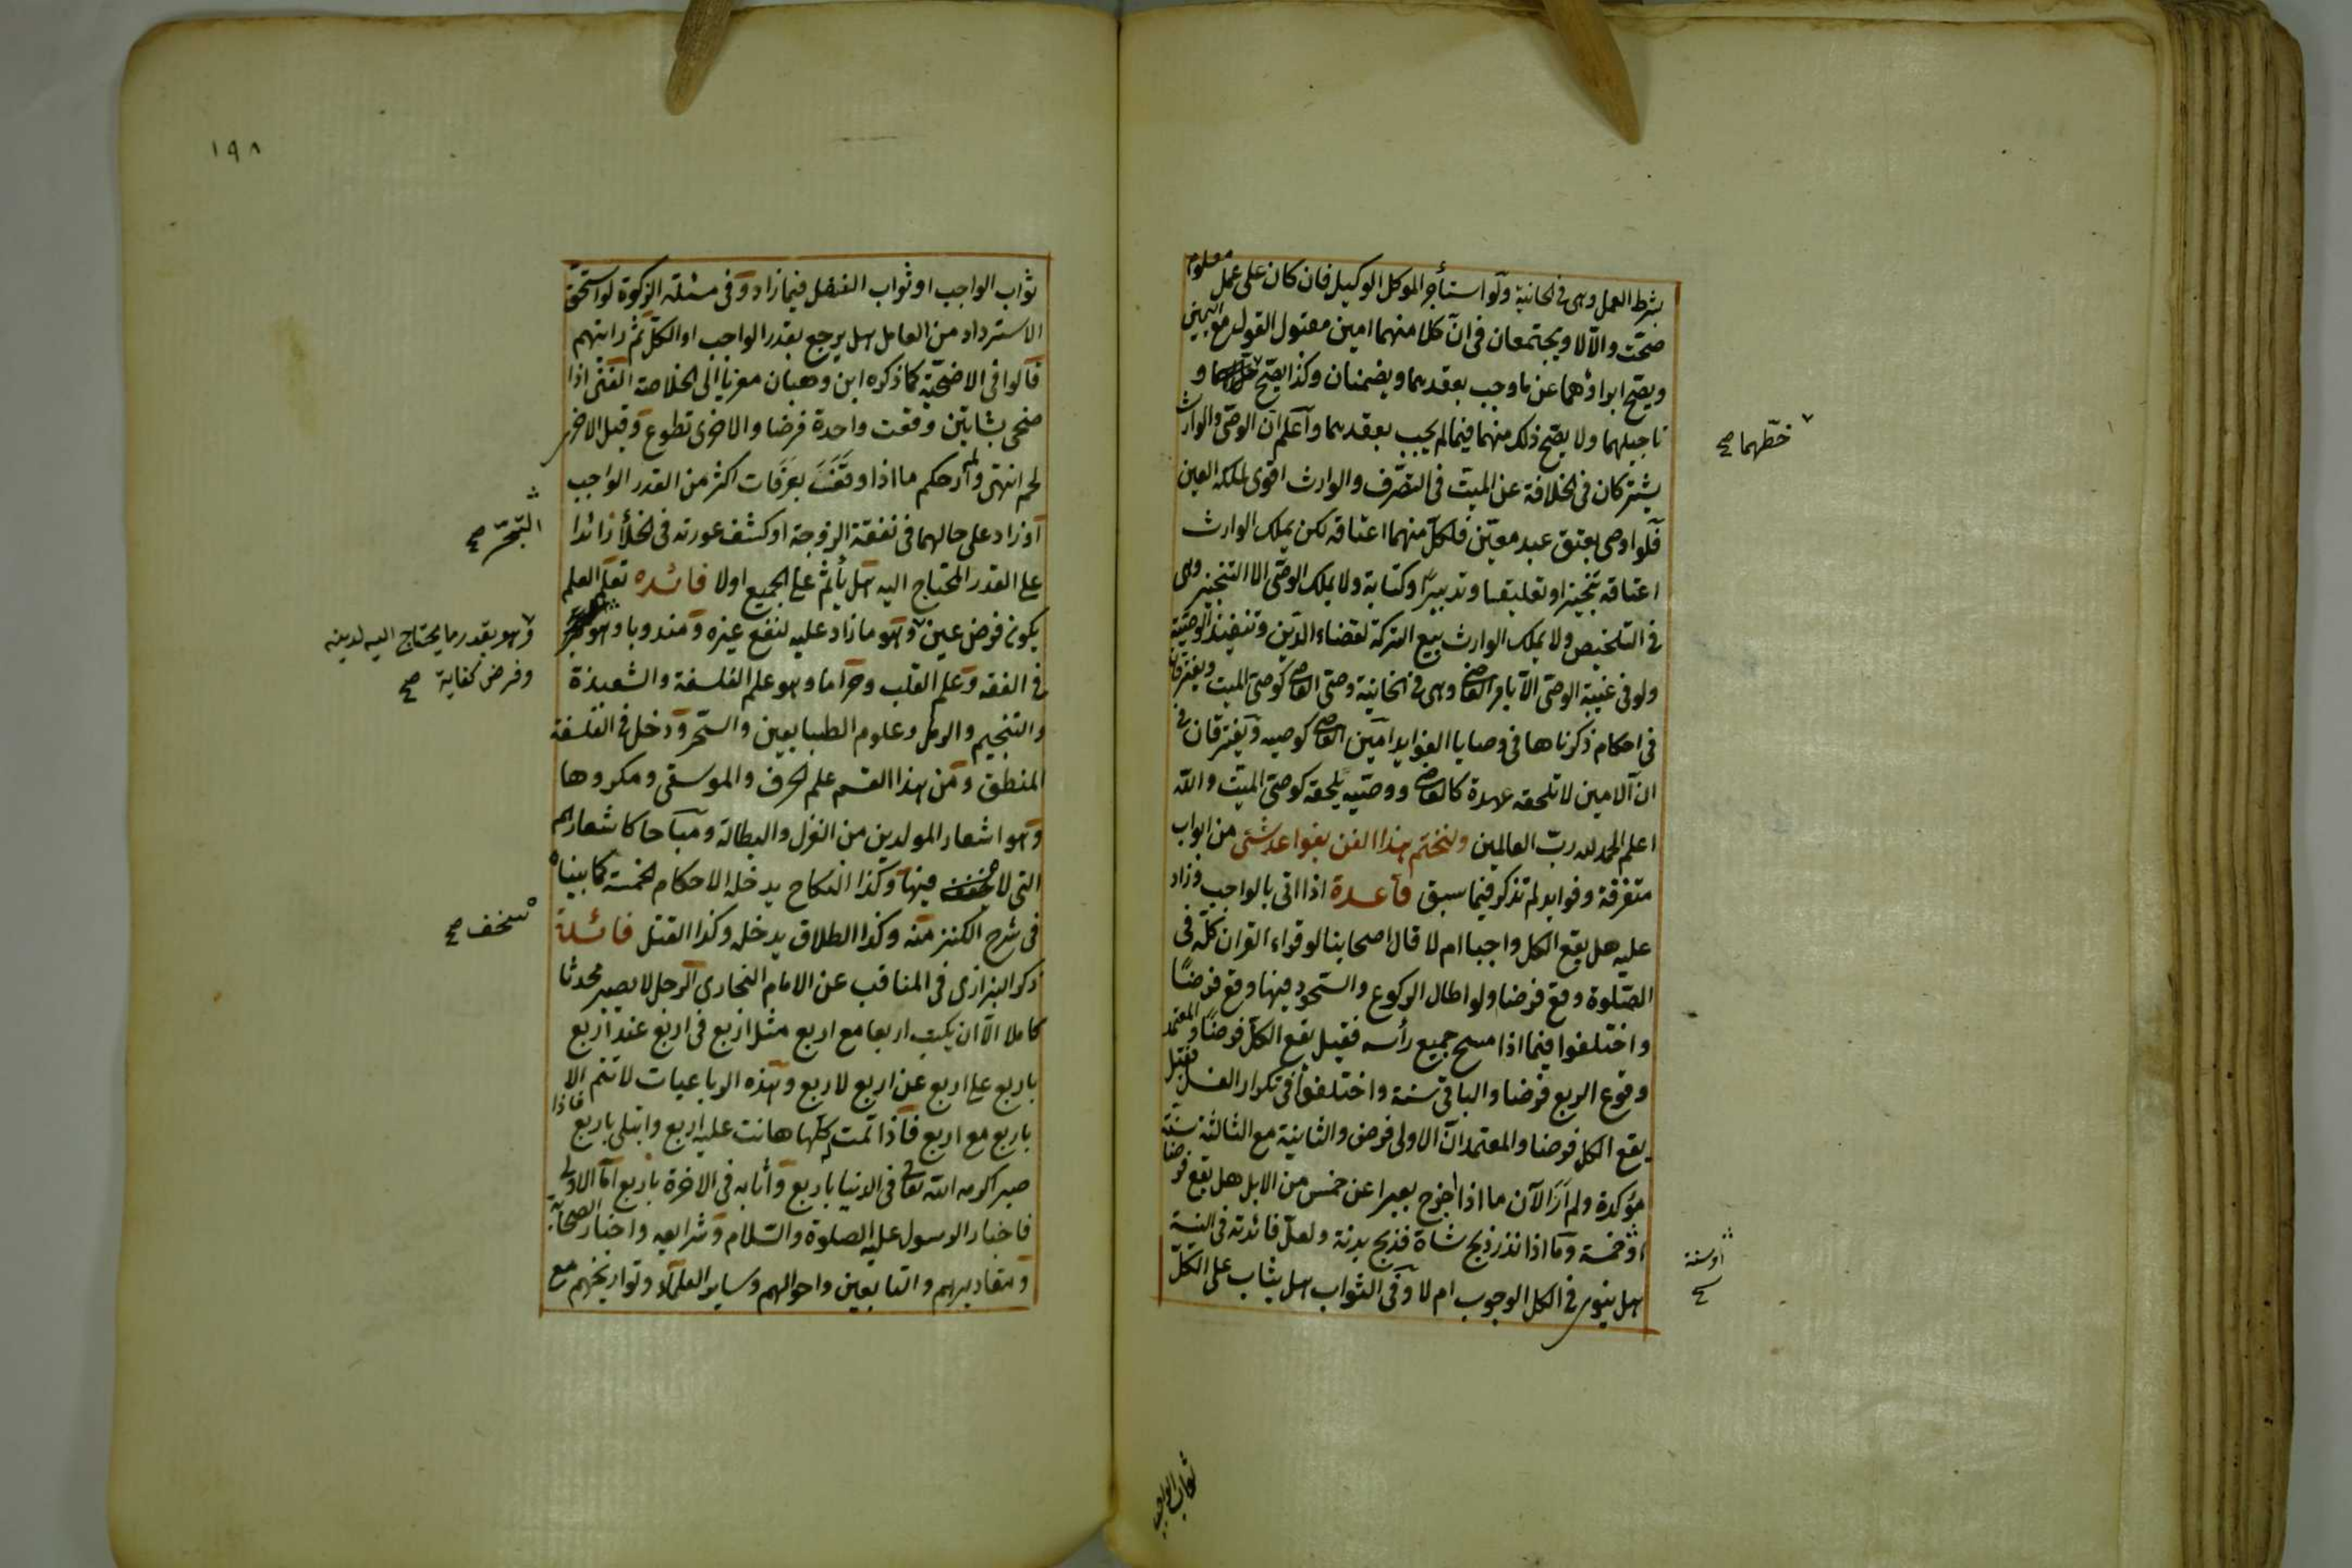 بشرط العمل وهى فى الخانية ولو استأجر الموكل الوكيل فان كان على عمل معلوم
صحت والا لا ويجتمعان فى ان كلا منهما امين مقبول القول مع اليمين
ويصح ابراؤهما عن ما وجب بعقدهما ويضمنان وكذا يصح و
تاجيلهما ولا يصح ذلك منهما فيما لم يجب بعقدهما واعلم ان الوصى والوارث
خطهما صح
يشتركان فى الخلافة عن الميت فى التصرف والوارث اقوى لملكه العين
فلو اوصى بعتق عبد معين فلكل منهما اعتاقه لكن يملك الوارث
اعتاقه تنجيزا وتعليقا وتدبيرا وكتابة ولا يملك الوصى الا التنجيز وهى
فى التلخيص ولا يملك الوارث بيع التركة لقضاء الدين وتنفيذ الوصية
ولو فى غيبة الوصى الا بامر القاضى وهى فى الخانية وصى القاضى كوصى الميت ويفترقان
فى احكام ذكرناها فى وصايا الفوايد امين القاضى كوصيه ويفترقان فى
ان الامين لا تلحقه عهدة كالقاضى ووصيه يلحقه كوصى الميت والله
اعلم الحمد لله رب العالمين ولنختم هذا الفن بقواعد شتى من ابواب
متفرقة وفوايد لم تذكر فيما سبق قاعدة اذا اتى بالواجب وزاد
عليه هل يقع الكل واجبا ام لا قال اصحابنا لو قراء القران كله فى
الصلوة وقع فرضا ولو اطال الركوع والسجود فيها وقع فرضا
واختلفوا فيما اذا مسح جميع رأسه فقيل يقع الكل فرضا والمعتمد
وقوع الربع فرضا والباقى سنة واختلفوا فى تكرار الغسل فقيل
يقع الكل فرضا والمعتمد ان الاولى فرض والثانية مع الثالثة سنة
مؤكدة ولم ار الان ما اذا اخرج بعيرا عن خمس من الابل هل يقع فرضا
او خمسة وما اذا نذر ذبح شاة فذبح بدنة ولعل فائدته فى النية
اوسنة
صح
هل ينوى فى الكل الوجوب ام لا وفى الثواب هل يثاب على الكل
ثواب الواجب
١٩٨
ثواب الواجب او ثواب الفضل فيما زاد وفى مسئلة الزكوة لو استحق
الاسترداد من العامل هل يرجع بقدر الواجب او الكل ثم رايتهم
قالوا فى الاضحية كما ذكره ابن وهبان معزيا الى الخلاصة الغنى اذا
ضحى بشاتين وقعت واحدة فرضا والاخرى تطوع وقيل الاخرى
لحم انتهى ولم ار حكم ما اذا وقف بعرفات اكثر من القدر الواجب
او زاد على حالهما فى نفقة الزوجة او كشف عورته فى الخلأ زائدا
التبحر صح
على القدر المحتاج اليه هل يأثم على الجميع اولا فائده تعلم العلم
يكون فرض عين وهو ما زاد عليه لنفع غيره ومندوبا وهو
وهو بقدر ما يحتاج اليه لدينه
وفرض كفاية صح
فى الفقه وعلم القلب وحراما وهو علم الفلسفة والشعبذة
والتنجيم والرمل وعلوم الطبايعين والسحر ودخل فى الفلسفة
المنطق ومن هذا القسم علم الحرف والموسقى ومكروها
وهو اشعار المولدين من الغزل والبطالة ومباحا كاشعارهم
التى لا فيها وكذا النكاح يدخله الاحكام الخمسة كما بيناه
سخف صح
فى شرح الكنز منه وكذا الطلاق يدخله وكذا القتل فائدة
ذكر البزازى فى المناقب عن الامام البخارى الرجل لا يصير محدثا
كاملا الا ان يكتب اربعا مع اربع مثل اربع فى اربع عند اربع
باربع على اربع عن اربع لاربع وهذه الرباعيات لا تتم الا
باربع مع اربع فاذا تمت له كلها هانت عليه اربع وابتلى باربع فاذا
صبر اكرمه الله تعالى فى الدنيا باربع واثابه فى الاخرة باربع اما الاولى
فاخبار الرسول عليه الصلوة والسلام وشرايعه واخبار الصحابة
ومقاديرهم والتابعين واحوالهم وساير العلماء وتواريخهم مع